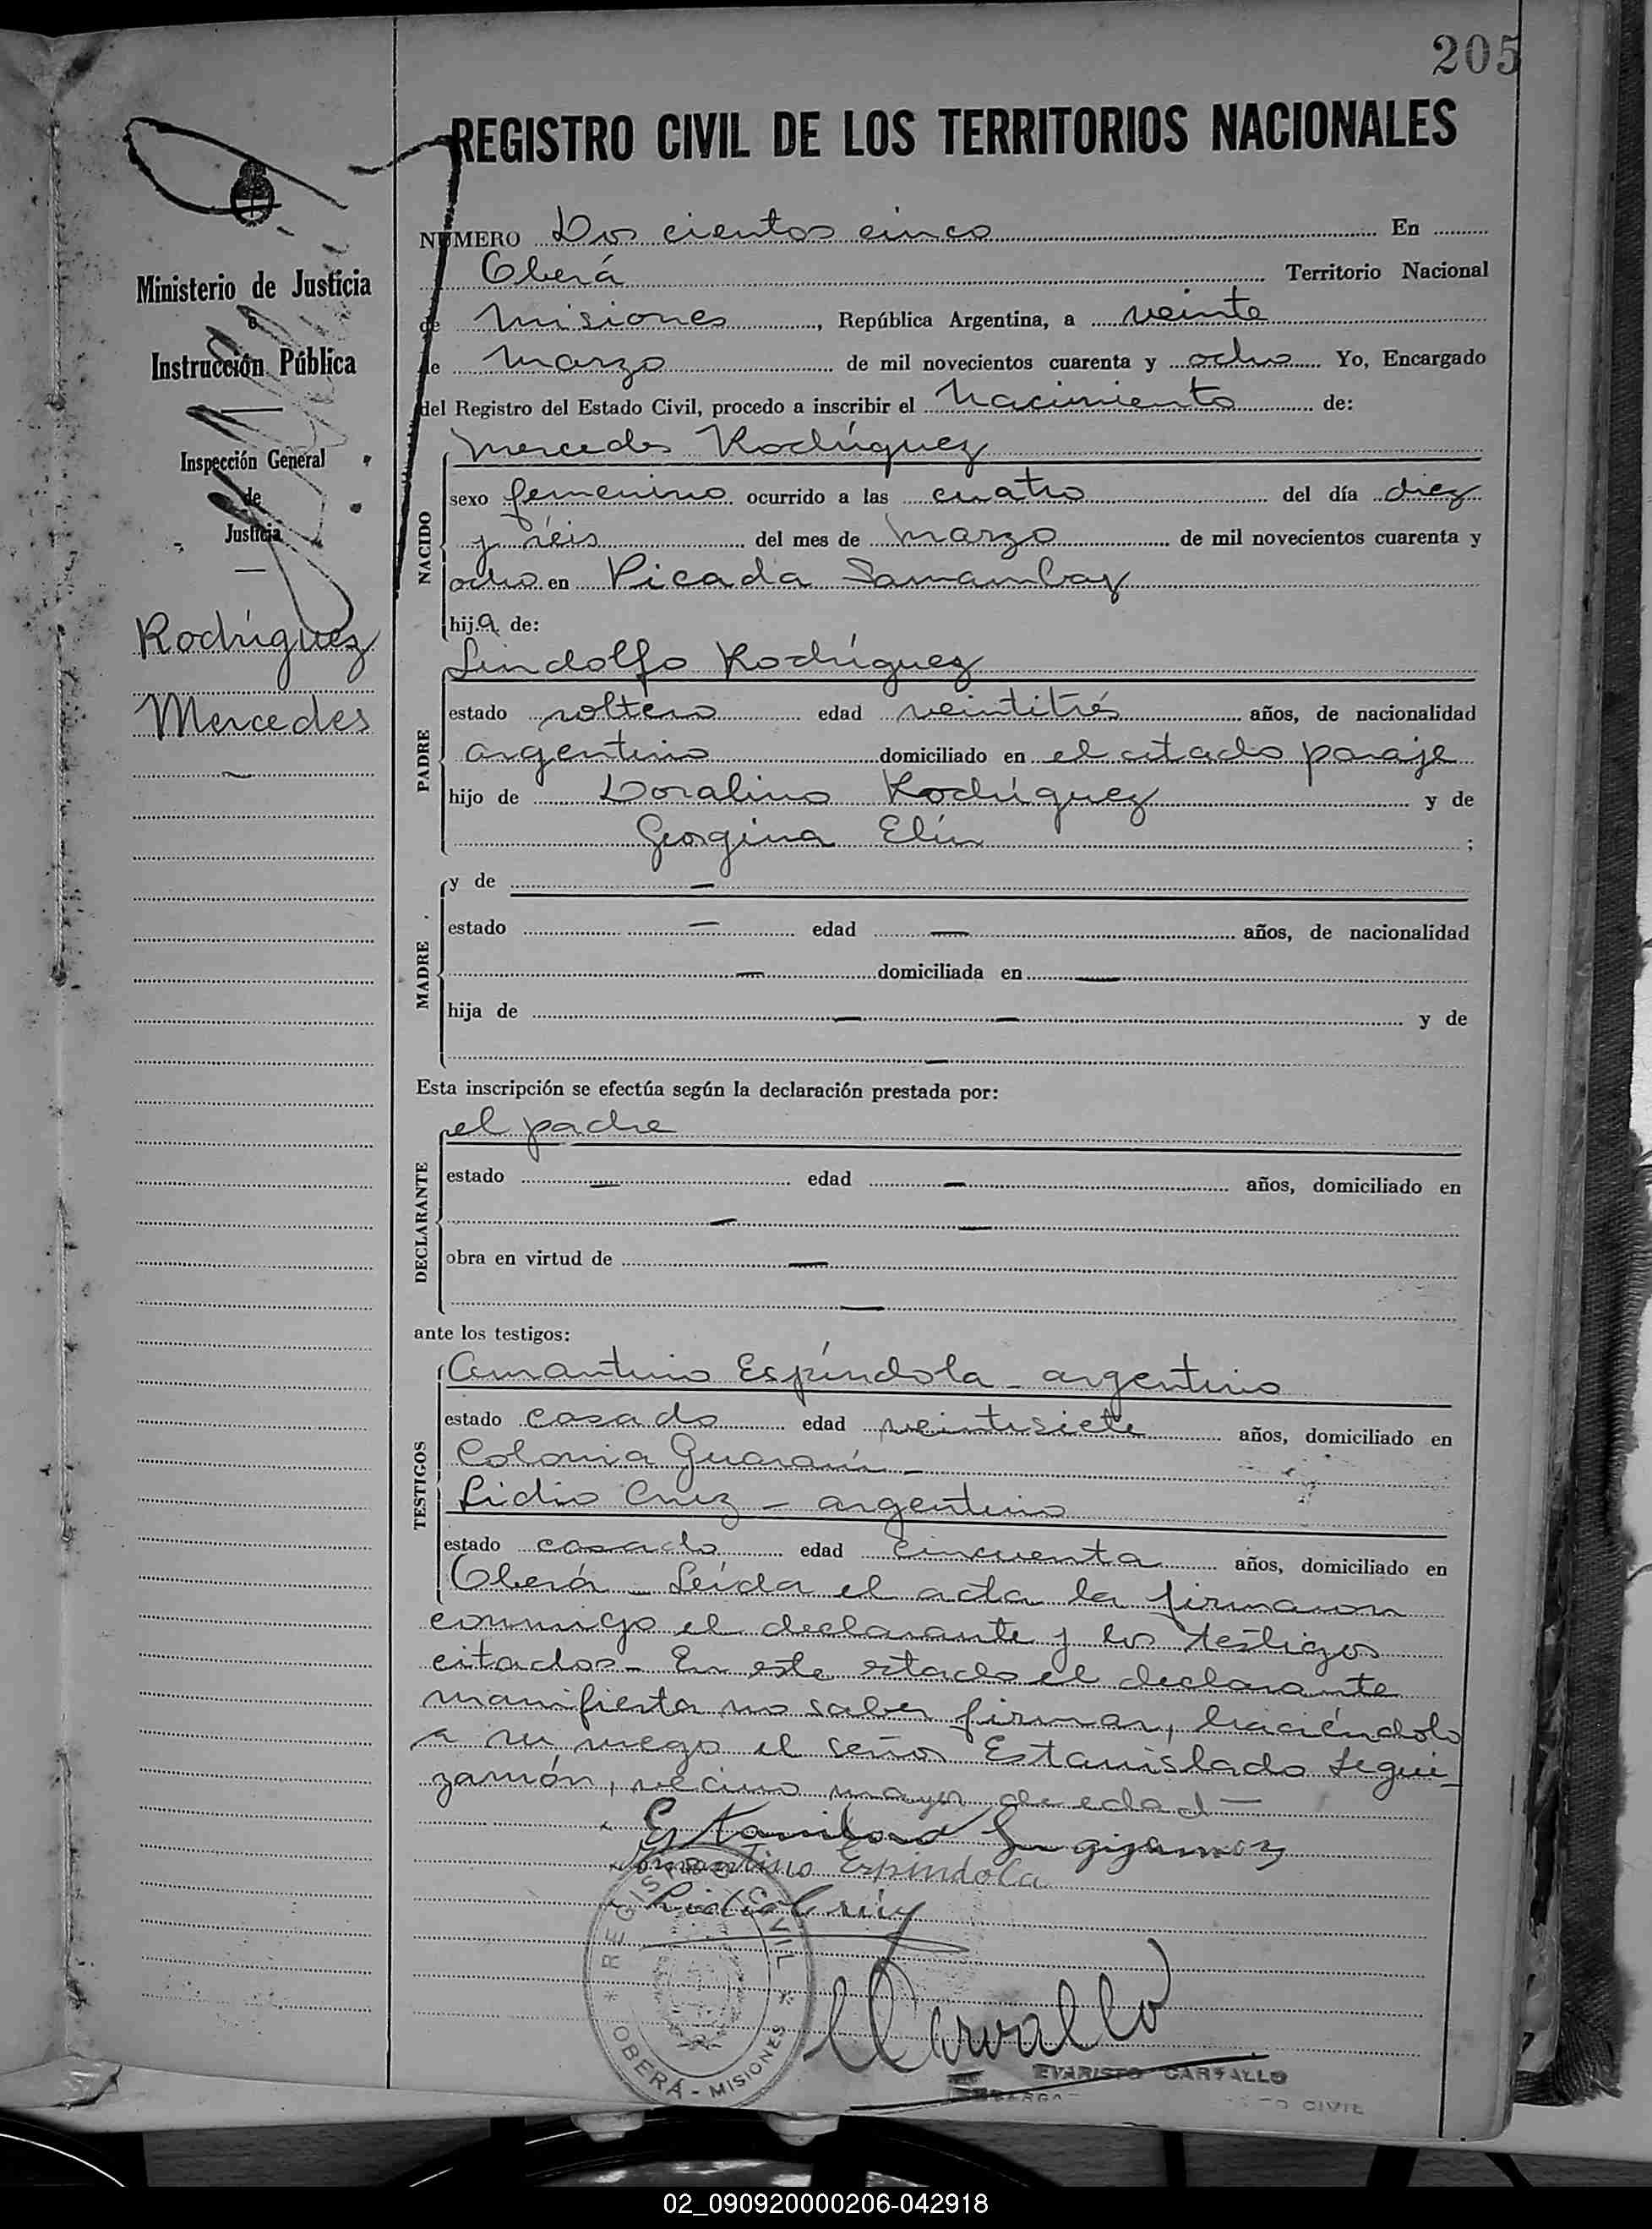 205
REGISTRO CIVIL DE LOS TERRITORIOS NACIONALES
NUMERO Dos cientos cinco En
Oberá Territorio Nacional
de Misiones, República Argentina, a veinte
de Marzo de mil novecientos cuarenta y ocho Yo, Encargado
del Registro del Estado Civil, procedo a inscribir el Nacimiento de:
Ministerio de Justicia
e
Instrucción Pública
Inspección General
de
Justicia
Rodríguez
Mercedes
NACIDO
Mercedes Rodríguez
sexo femenino ocurrido a las cuatro del día diez
y séis del mes de Marzo de mil novecientos cuarenta y
ocho en Picada Samambay
hija de:
PADRE
Lindolfo Rodríguez
estado soltero edad veintitrés años, de nacionalidad
argentino domiciliado en el citado paraje
hijo de Doralino Rodríguez y de
Georgina Elín ;
MADRE
y de —
estado — edad — años, de nacionalidad
— domiciliada en —
hija de — — y de
—
Esta inscripción se efectúa según la declaración prestada por:
DECLARANTE
el padre
estado — edad — años, domiciliado en
— —
obra en virtud de —
—
ante los testigos:
TESTIGOS
Amantino Espíndola - argentino
estado casado edad veintisiete años, domiciliado en
Colonia Guaraní -
Lidio Cruz - argentino
estado casado edad cincuenta años, domiciliado en
Oberá - Leída el acta la firmaron
conmigo el declarante y los testigos
citados - En este estado el declarante
manifiesta no saber firmar, haciéndolo
a su ruego el señor Estanislado Legui-
zamón, vecino mayor de edad —
Amantino Espindola
REGISTRO CIVIL
* OBERÁ - MISIONES *
Carvallo
EVARISTO CARVALLO
CIVIL
02_090920000206-042918